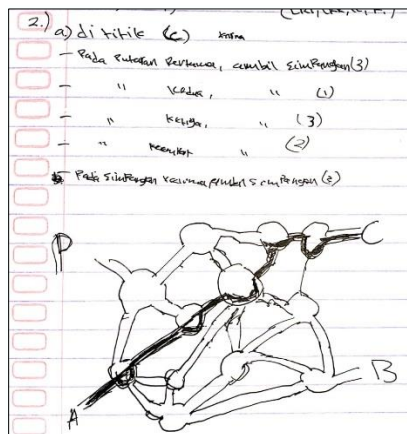 2.) a) di titik (C)
- Pada Putaran Pertama, ambil simpangan (3)
- " kedua, " (1)
- " ketiga, " (3)
- " keempat " (2)
Pada simpangan kelima ambil simpangan (2)
P
C
B
A